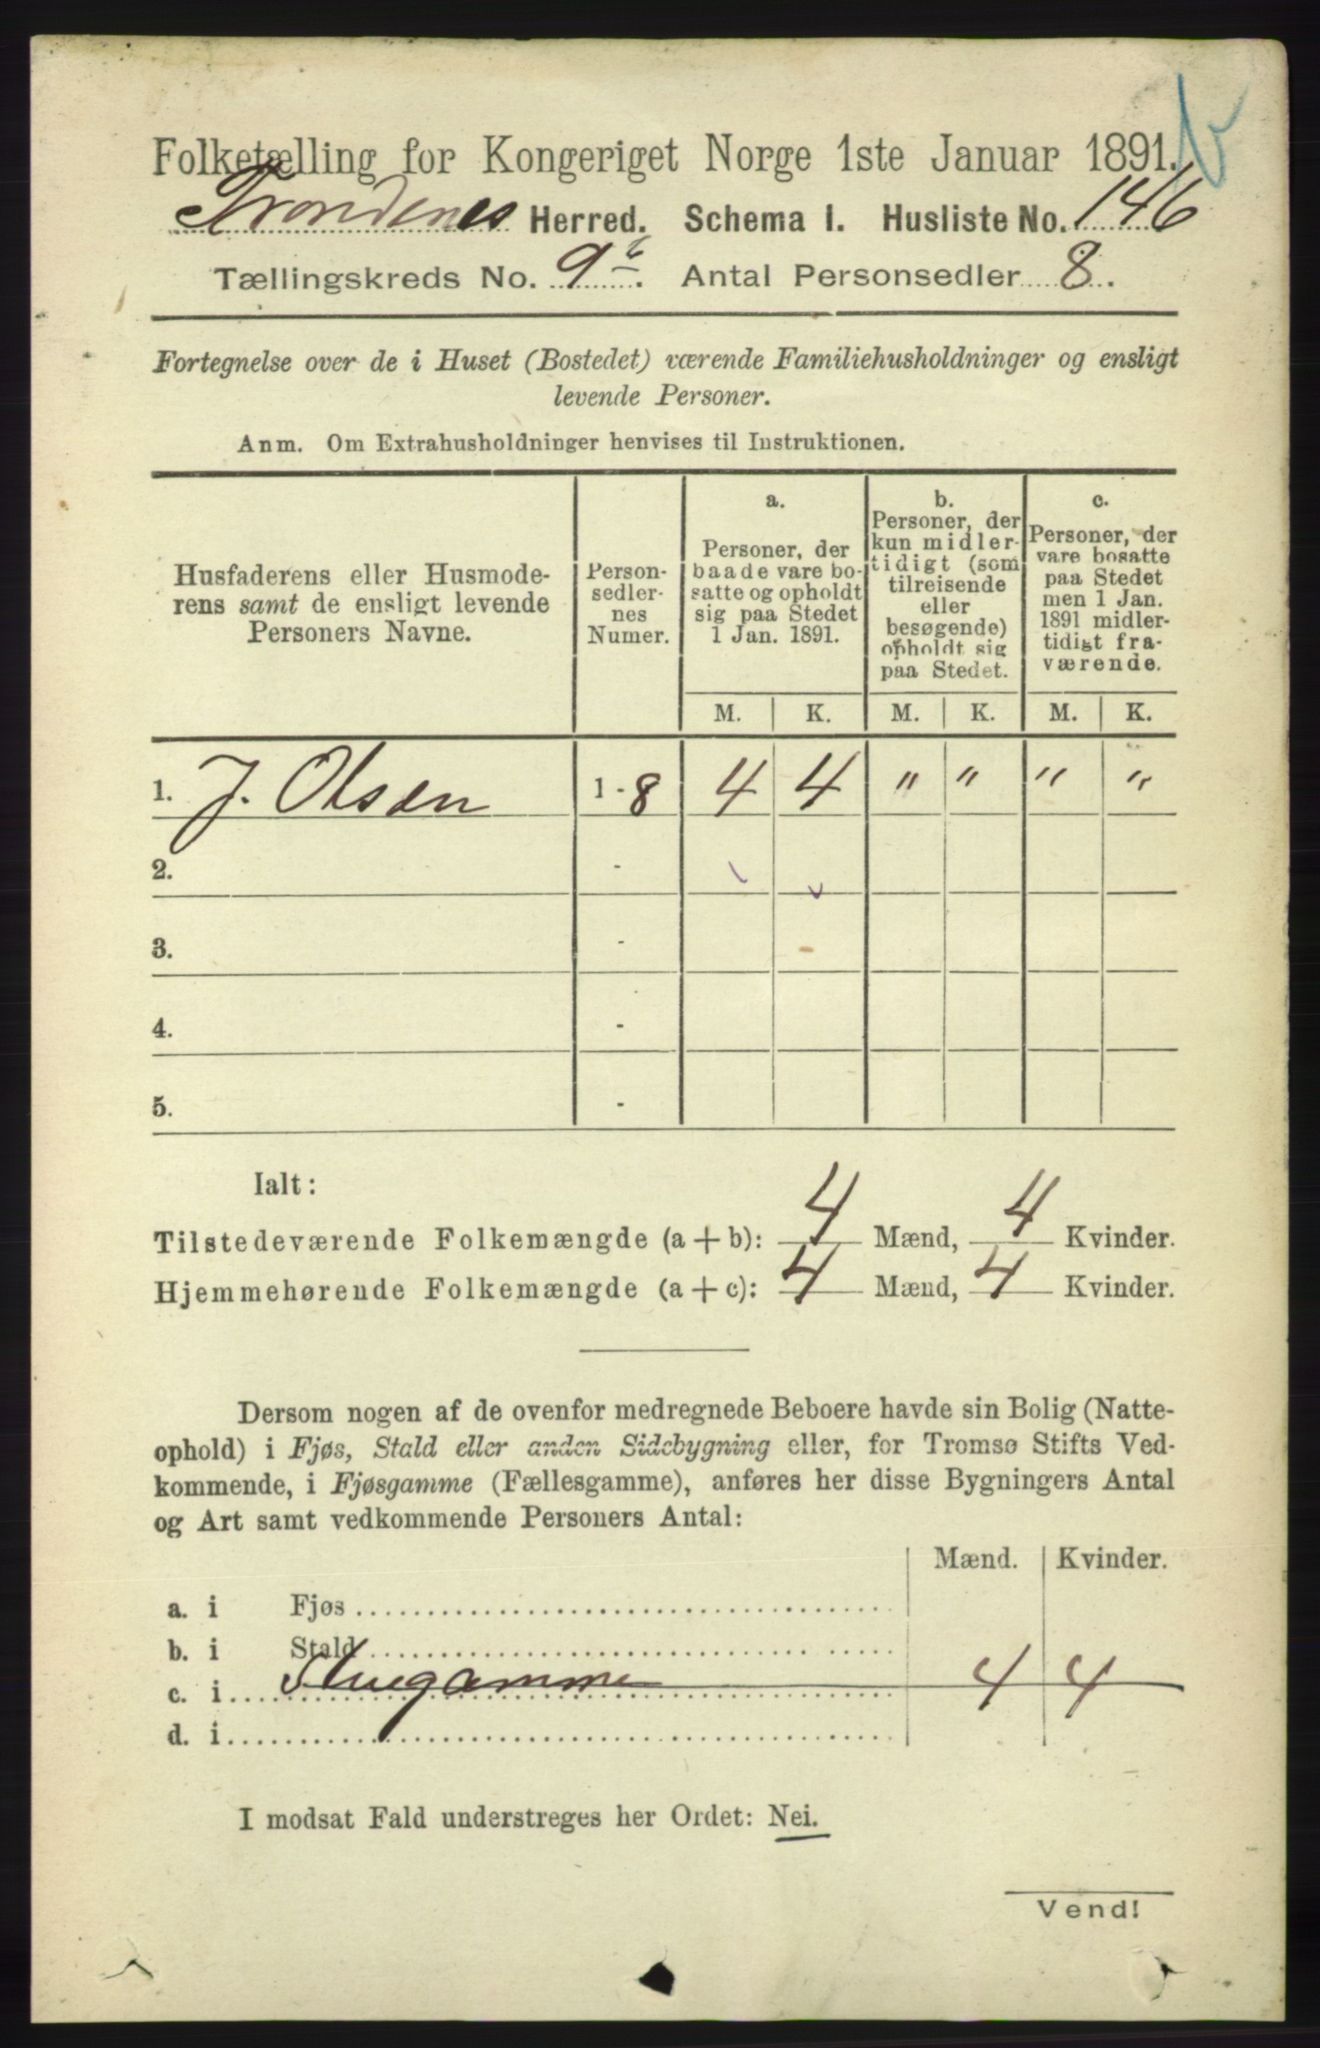 Folketælling for Kongeriget Norge 1ste Januar 1891.
Trondenes Herred. Schema I. Husliste No. 146
Tællingskreds No. 9b. Antal Personsedler 8.
Fortegnelse over de i Huset (Bostedet) værende Familiehusholdninger og ensligt
levende Personer.
Anm. Om Extrahusholdninger henvises til Instruktionen.
Husfaderens eller Husmode-
rens samt de ensligt levende
Personers Navne.
Person-
sedler-
nes
Numer.
a.
Personer, der
baade vare bo-
satte og opholdt
sig paa Stedet
1 Jan. 1891.
b.
Personer, der
kun midler-
tidigt (som
tilreisende
eller
besøgende)
opholdt sig
paa Stedet.
c.
Personer, der
vare bosatte
paa Stedet
men 1 Jan.
1891 midler-
tidigt fra-
værende.
M. K. M. K. M. K.
1. J. Olsen 1-8 4 4 " " " "
2. -
3. -
4. -
5. -
Ialt:
Tilstedeværende Folkemængde (a+b): 4 Mænd, 4 Kvinder.
Hjemmehørende Folkemængde (a+c): 4 Mænd, 4 Kvinder.
Dersom nogen af de ovenfor medregnede Beboere havde sin Bolig (Natte-
ophold) i Fjøs, Stald eller anden Sidebygning eller, for Tromsø Stifts Ved-
kommende, i Fjøsgamme (Fællesgamme), anføres her disse Bygningers Antal
og Art samt vedkommende Personers Antal:
Mænd. Kvinder.
a. i Fjøs
b. i Stald
c. i Stuegamme 4 4
d. i
I modsat Fald understreges her Ordet: Nei.
Vend!